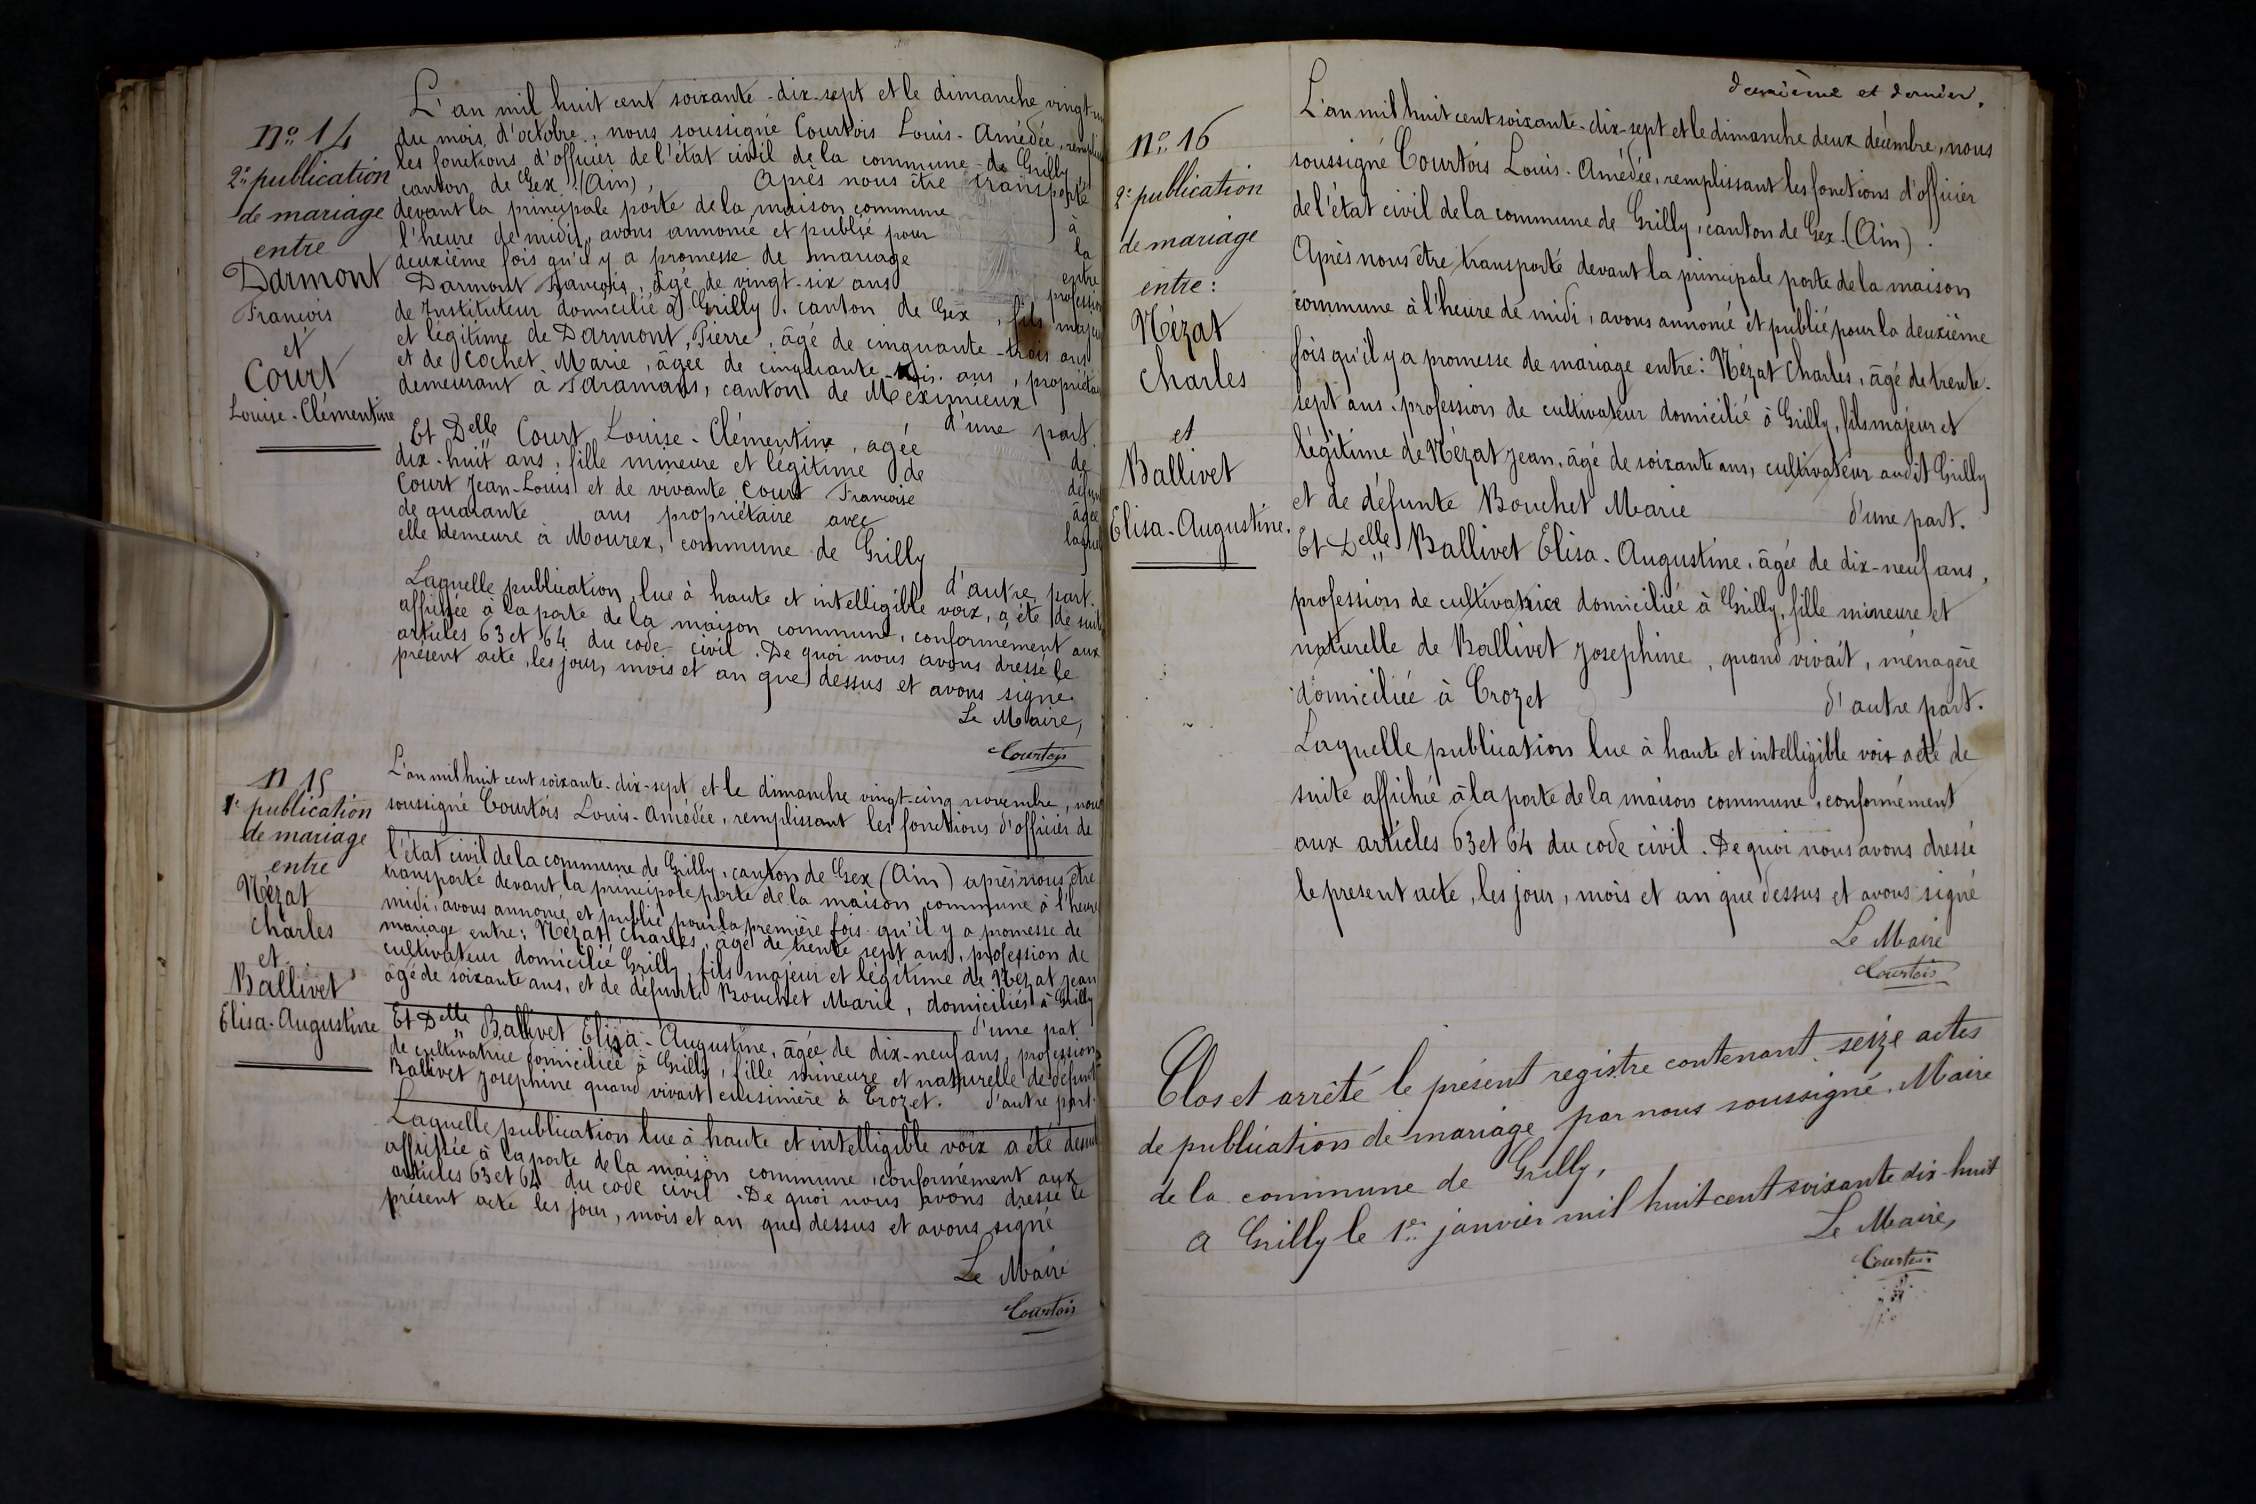 N° 14
2e publication
de mariage
entre
Darmont
François
et
Court
Louise-Clémentine
L'an mil huit cent soixante-dix-sept et le dimanche vingt-un
du mois d'octobre, nous soussigné Courtois Louis-Amédée, remplissant
les fonctions d'officier de l'état civil de la commune de Grilly,
canton de Gex (Ain), Après nous être transporté
devant la principale porte de la maison commune à
l'heure de midi, avons annoncé et publié pour la
deuxième fois qu'il y a promesse de mariage entre
Darmont François, âgé de vingt-six ans profession
de Instituteur domicilié à Grilly, canton de Gex, fils majeur
et légitime de Darmont, Pierre, âgé de cinquante-trois ans
et de Cochet Marie, âgée de cinquante-trois ans, propriétaires
demeurant à canton de Meximieux
d'une part.
Et Delle Court Louise-Clémentine, agée de
dix-huit ans, fille mineure et légitime de défunt
Court Jean-Louis et de vivante Court Françoise âgée
de quarante ans propriétaire avec laquelle
elle demeure à Mourex, commune de Grilly
d'autre part.
Laquelle publication, lue à haute et intelligible voix, a été de suite
affichée à la porte de la maison commune, conformément aux
articles 63 et 64 du code civil. De quoi nous avons dressé le
présent acte, les jour, mois et an que dessus et avons signé.
Le Maire,
Courtois
N 15
1e publication
de mariage
entre
Nézat
Charles
et
Ballivet
Elisa-Augustine
L'an mil huit cent soixante-dix-sept et le dimanche vingt-cinq novembre, nous
soussigné Courtois Louis-Amédée, remplissant les fonctions d'officier de
l'état civil de la commune de Grilly, canton de Gex (Ain) après nous être
transporté devant la principale porte de la maison commune à l'heure
midi, avons annoncé et publié pour la première fois qu'il y a promesse de
mariage entre: Nézat Charles, âgé de trente sept ans, profession de
cultivateur domicilié Grilly, fils majeur et légitime de Nézat Jean
âgé de soixante ans, et de défunte Bouchet Marie, domiciliés à Grilly
d'une pat
Et Delle Ballivet Elisa-Augustine, âgée de dix-neuf ans, profession
de cultivatrice domiciliée à Grilly, fille mineure et naturelle de défunte
Ballivet Josephine quand vivait cuisinière à Crozet. d'autre part.
Laquelle publication lue à haute et intelligible voix a été de suite
affichée à la porte de la maison commune, conformément aux
articles 63 et 64 du code civil. De quoi nous avons dressé le
présent acte les jour, mois et an que dessus et avons signé
Le Maire
Courtois
deuxième et dernier.
N° 16
2e publication
de mariage
entre:
Nézat
Charles
et
Ballivet
Elisa-Augustine.
L'an mil huit cent soixante-dix-sept et le dimanche deux décembre, nous
soussigné Courtois Louis-Amédée, remplissant les fonctions d'officier
de l'état civil de la commune de Grilly, canton de Gex (Ain).
Après nous être transporté devant la principale porte de la maison
commune à l'heure de midi, avons annoncé et publié pour la deuxième
fois qu'il y a promesse de mariage entre: Nézat Charles, âgé de trente-
sept ans, profession de cultivateur domicilié à Grilly, fils majeur et
légitime de Nézat Jean, âgé de soixante ans, cultivateur audit Grilly
et de défunte Bouchet Marie d'une part.
Et Delle Ballivet Elisa-Augustine, âgée de dix-neuf ans,
profession de cultivatrice domiciliée à Grilly, fille mineure et
naturelle de Ballivet Josephine, quand vivait, ménagère
domiciliée à Crozet d'autre part.
Laquelle publication lue à haute et intelligible voix a été de
suite affichée à la porte de la maison commune, conformément
aux articles 63 et 64 du code civil. De quoi nous avons dressé
le present acte, les jour, mois et an que dessus et avons signé
Le Maire
Courtois
Clos et arrêté le présent registre contenant seize actes
de publication de mariage par nous soussigné, Maire
de la commune de Grilly,
A Grilly le 1er janvier mil huit cent soixante dix-huit
Le Maire,
Courtois